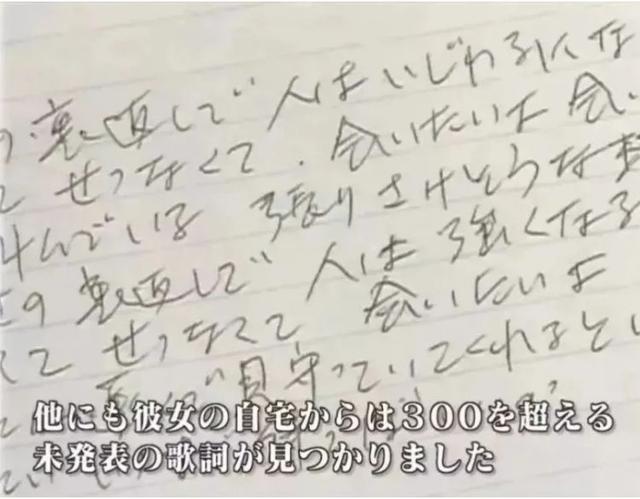 の裏返しで 人はいじわるにな
せつなくて、会いたいよ 会い
叫んでいる 張りさけそうな
の裏返しで 人は強くなる
て せつなくて 会いたいよ
見守っていてくれると
他にも彼女の自宅からは300を超える
未発表の歌詞が見つかりました